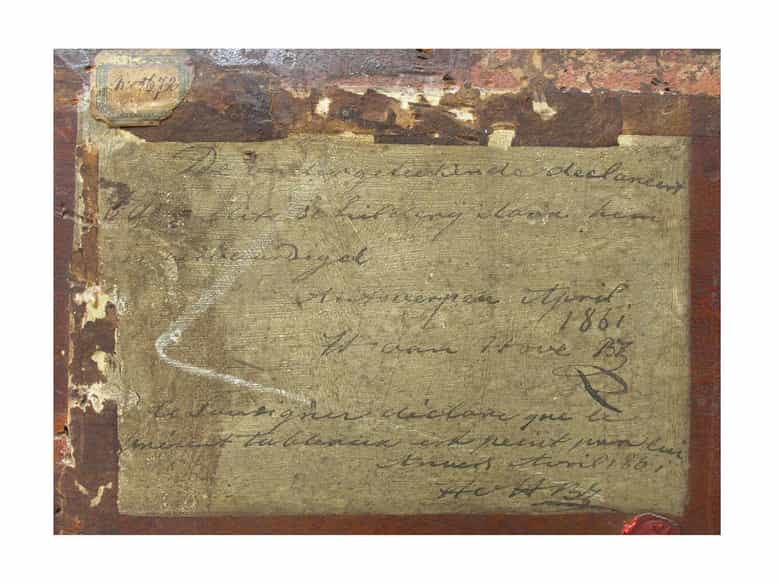 No 1672
De ondergetekende declareert
dit schilderij door hem
vervaardigd
Antwerpen April
1861
H van Hove BZ
le soussigner déclare que le
présent tableaux est peint par lui
Anvers Avril 1861
H v H BZ